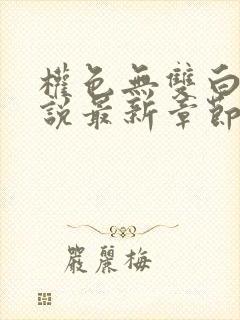 權色無雙白
說最新章節
嚴麗梅